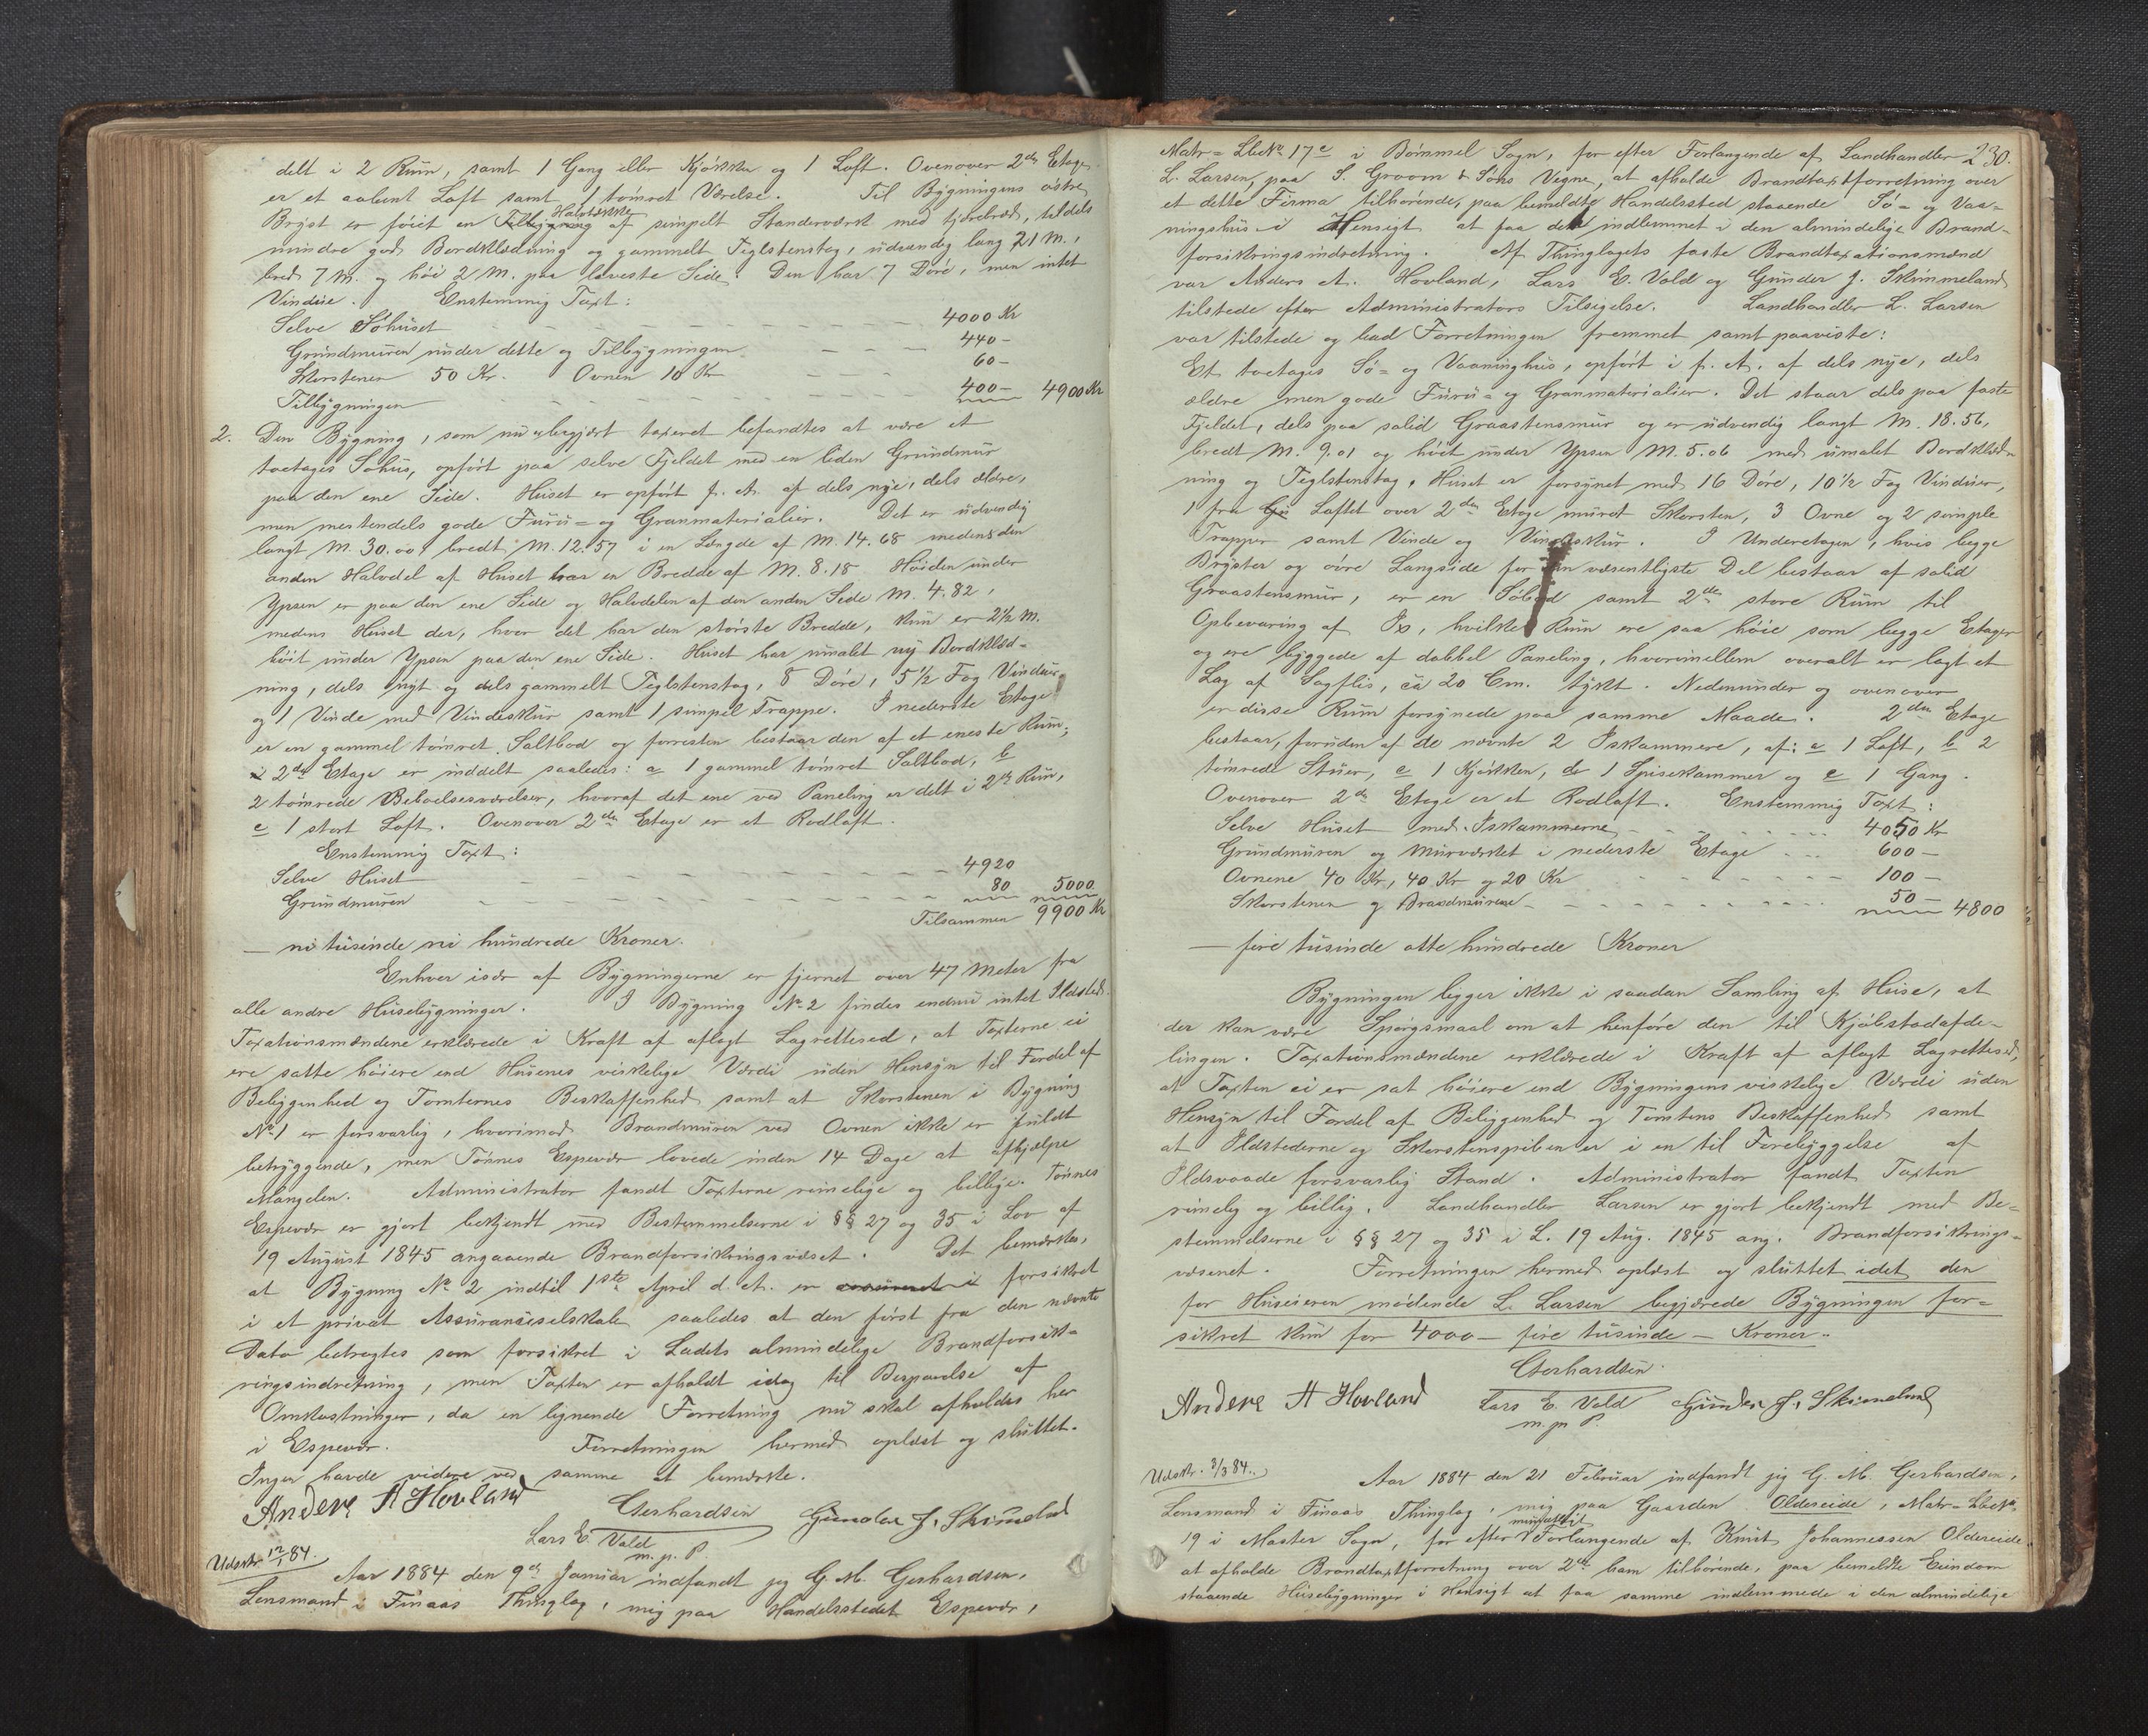 delt i 2 Rum, samt 1 Gang eller Kjøkken og 1 Loft. Ovenover 2den Etage
er et aabent Loft samt 1 tømret Værelse. Til Bygningens østre
Bryst er føiet en Tilbygning Halvtække af simpelt Standerværk med fjærebræd, tildels
mindre god Bordklædning og gammelt Teglstenstag, udvendig lang 21 M.,
bred 7 M. og høi 2 M. paa laveste Side. Den har 7 Døre, men intet
Vindue. Enstemmig Taxt:
Selve Søhuset 4000 Kr
Grundmuren under dette og Tilbygningen 440 -
Skorstenen 50 Kr. Ovnen 10 Kr 60 -
Tilbygningen 400 - 4900 Kr
2. Den Bygning, som nu begjært taxeret befandtes at være et
toetages Søhus, opført paa selve Fjeldet med en liden Grundmur
paa den ene Side. Huset er opført f. A. af dels nye, dels ældre,
men mestendels gode Furu- og Granmaterialier. Det er udvendig
langt M. 30.00, bredt M. 12.57 i en Længde af M. 14.68 medens den
anden Halvdel af Huset har en Bredde af M. 8.18. Høiden under
Ypsen er paa den ene Side og Halvdelen af den anden Side M. 4.82,
medens Huset der, hvor det har den største Bredde, kun er 2½ M.
høit under Ypsen paa den ene Side. Huset har umalet ny Bordklæd-
ning, dels nyt og dels gammelt Teglstenstag, 8 Døre, 5½ Fag Vinduer
og 1 Vinde med Vindeskur samt 1 simpel Trappe. I nederste Etage
er en gammel tømret Saltbod og forresten bestaar den af et eneste Rum;
i 2den Etage er inddelt saaledes: a 1 gammel tømret Saltbod, b
2 tømrede Beboelsesværelser, hvoraf det ene ved Paneling er delt i 2de Rum,
c 1 stort Loft. Ovenover 2den Etage er et Rodloft.
Enstemmig Taxt:
Selve Huset 4920
Grundmuren 80 5000
Tilsammen 9900 Kr
— ni tusinde ni hundrede Kroner.
Enhver især af Bygningerne er fjernet over 47 Meter fra
alle andre Husebygninger. I Bygning No 2 findes endnu intet Ildsted.
Taxationsmændene erklærede i Kraft af aflagt Lagrettesed, at Taxterne ei
ere satte høiere end Husenes virkelige Værdi uden Hensyn til Fordel af
Beliggenhed og Tomternes Beskaffenhed samt at Skorstenen i Bygning
No 1 er forsvarlig, hvorimod Brandmuren ved Ovnen ikke er fuldt
betryggende, men Tønnes Espevær lovede inden 14 Dage at afhjelpe
Mangelen. Administrator fandt Taxterne rimelige og billige. Tønnes
Espevær er gjort bekjendt med Bestemmelserne i §§ 27 og 35 i Lov af
19 August 1845 angaaende Brandforsikringsvæset. Det bemærkes,
at Bygning No 2 indtil 1ste April d. A. er assureret i forsikret
i et privat Assuranceselskab saaledes at den først fra den nævnte
Dato betragtes som forsikret i Landets almindelige Brandforsik-
ringsindretning, men Taxten er afholdt idag til Besparelse af
Omkostninger, da en lignende Forretning nu skal afholdes her
i Espevær. Forretningen hermed oplæst og sluttet.
Ingen havde videre ved samme at bemærke.
Anders A Hovland Gerhardsen Gunder J. Skimeland
Lars E. Vold
m. p. P.
Udskr. 12/1 84.
Aar 1884 den 9de Januar indfandt jeg G. M. Gerhardsen,
Lensmand i Finaas Thinglag, mig paa Handelsstedet Espevær,
230.
Matr-Lbn. 17c i Bømmel Sogn, for efter Forlangende af Landhandler
L. Larsen, paa S. Groom & Søns Vegne, at afholde Brandtaxtforretning over
et dette Firma tilhørende, paa bemeldte Handelssted staaende Sø- og Vaa-
ningshus i Hensigt at faa det indlemmet i den almindelige Brand-
forsikringsindretning. Af Thinglagets faste Brandtaxationsmænd
var Anders A. Hovland, Lars E. Vold og Gunder J. Skimmeland
tilstede efter Administrators Tilsigelse. Landhandler L. Larsen
var tilstede og bad Forretningen fremmet samt paaviste:
Et toetages Sø- og Vaaninghus, opført i f. A. af dels nye, dels
ældre men gode Furu- og Granmaterialier. Det staar dels paa faste
Fjeldet, dels paa solid Graastensmur og er udvendig langt M. 18.56,
bredt M. 9.01 og høit under Ypsen M. 5.06 med umalet Bordklæd-
ning og Teglstenstag. Huset er forsynet med 16 Døre, 10½ Fag Vinduer,
1 fra Gu Loftet over 2den Etage muret Skorsten, 3 Ovne og 2 simple
Trapper samt Vinde og Vindeskur. I Underetagen, hvis begge
Bryster og øvre Langside for den væsentligste Del bestaar af solid
Graastensmur, er en Søbod samt 2de store Rum til
Opbevaring af Is, hvilke Rum ere saa høie som begge Etager
og ere byggede af dobbel Paneling, hvorimellem overalt er lagt et
Lag af Sagflis, ca 20 Cm. tykt. Nedenunder og ovenover
er disse Rum forsynede paa samme Maade. 2den Etage
bestaar, foruden af de nævnte 2 Iskammere, af: a 1 Loft, b 2
tømrede Stuer, c 1 Kjøkken, d 1 Spisekammer og e 1 Gang.
Ovenover 2den Etage er et Rodloft. Enstemmig Taxt:
Selve Huset med Iskammerne 4050 Kr
Grundmuren og Murværket i nederste Etage 600 —
Ovnene 40 Kr, 40 Kr og 20 Kr 100 —
Skorstenen og Brandmurene 50 — 4800
— fire tusinde otte hundrede Kroner
Bygningen ligger ikke i saadan Samling af Huse, at
der kan være Spørgsmaal om at henføre den til Kjøbstadafde-
lingen. Taxationsmændene erklærede i Kraft af aflagt Lagrettesed,
at Taxten ei er sat høiere end Bygningens virkelige Værdi uden
Hensyn til Fordel af Beliggenhed og Tomtens Beskaffenhed samt
at Ildstederne og Skorstenspiben er i en til Forebyggelse af
Ildsvaade forsvarlig Stand. Administrator fandt Taxten
rimelig og billig. Landhandler Larsen er gjort bekjendt med Be-
stemmelserne i §§ 27 og 35 i L. 19 Aug. 1845 ang. Brandforsikrings-
væsenet. Forretningen hermed oplæst og sluttet idet den
for Huseieren mødende L. Larsen begjærede Bygningen for-
sikret kun for 4000 — fire tusinde — Kroner.
Gerhardsen.
Anders A Hovland Lars E. Vold Gunder J. Skimeland
m. p. P.
Udskr. 3/3 84.
Aar 1884 den 21 Februar indfandt jeg G. M. Gerhardsen,
Lensmand i Finaas Thinglag, mig paa Gaarden Oldereide, Matr-Lbn.
19 i Moster Sogn, for efter mundtlig Forlangende af Knut Johannessen Oldereide
at afholde Brandtaxtforretning over 2de ham tilhørende, paa bemeldte Eiendom
staaende Husebygninger i Hensigt at faa samme indlemmede i den almindelige